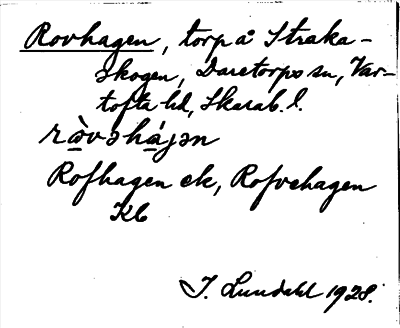 Rovhagen, torp å Straka-
skogen, Daretorps sn, Var-
tofta hd, Skarab. l.
ràvəhájən
Rofhagen ek, Rofvehagen
Kb
J. Lundahl 1928.